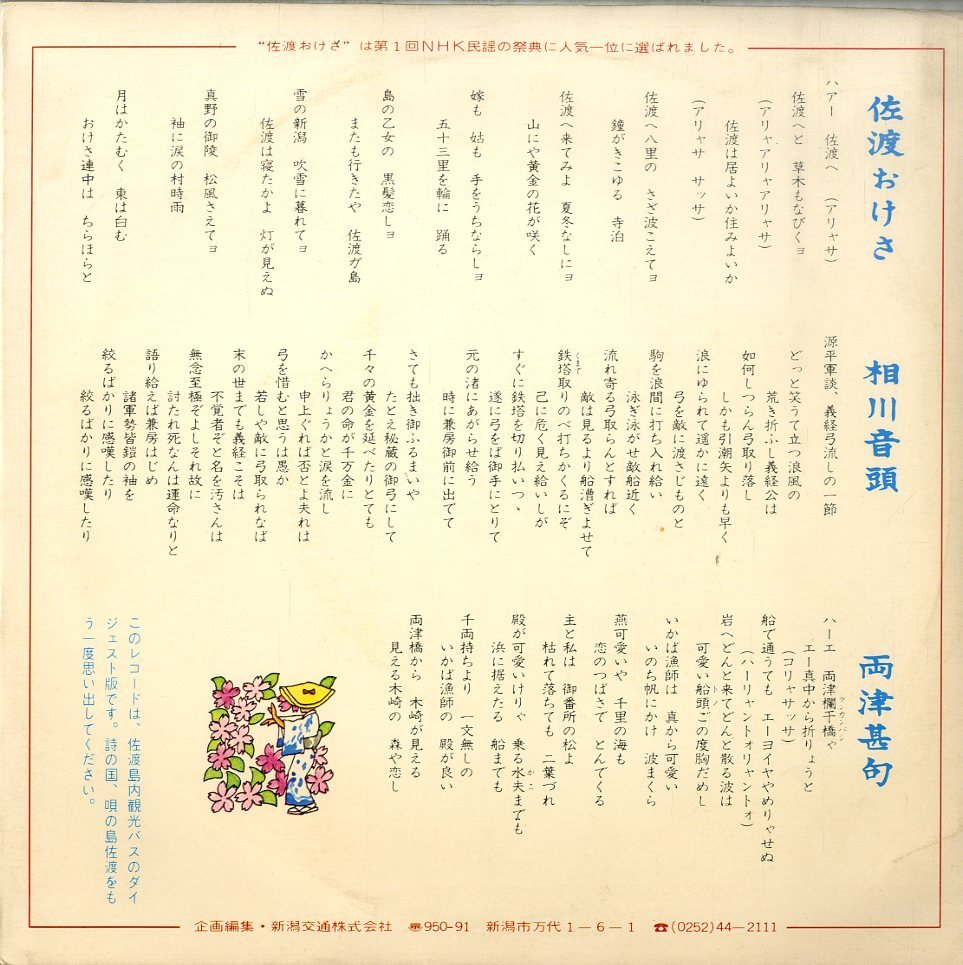 “佐渡おけさ” は第1回NHK民謡の祭典に人気一位に選ばれました。
佐渡おけさ
ハアー　佐渡へ　（アリャサ）
佐渡へと　草木もなびくヨ
（アリャアリャアリャサ）
佐渡は居よいか住みよいか
（アリャサ　サッサ）
佐渡へ八里の　さざ波こえてヨ
鐘がきこゆる　寺泊
佐渡へ来てみよ　夏冬なしにヨ
山にや黄金の花が咲く
嫁も　姑も　手をうちならしヨ
五十三里を輪に　踊る
島の乙女の　黒髪恋しヨ
またも行きたや　佐渡ガ島
雪の新潟　吹雪に暮れてヨ
佐渡は寝たかよ　灯が見えぬ
真野の御陵　松風さえてヨ
袖に涙の村時雨
月はかたむく　東は白む
おけさ連中は　ちらほらと
相川音頭
源平軍談、義経弓流しの一節
どっと笑うて立つ浪風の
荒き折ふし義経公は
如何しつらん弓取り落し
しかも引潮矢よりも早く
浪にゆられて遥かに遠く
弓を敵に渡さじものと
駒を浪間に打ち入れ給い
泳ぎ泳がせ敵船近く
流れ寄る弓取らんとすれば
敵は見るより船漕ぎよせて
鉄塔取りのべ打ちかくるにぞ
くまで
己に危く見え給いしが
すぐに鉄塔を切り払いつゝ
遂に弓をば御手にとりて
元の渚にあがらせ給う
時に兼房御前に出でて
さても拙き御ふるまいや
たとえ秘蔵の御弓にして
千々の黄金を延べたりとても
君の命が千万金に
かへらりょうかと涙を流し
申上ぐれば否とよ夫れは
弓を惜むと思うは愚か
若しや敵に弓取られなば
末の世までも義経こそは
不覚者ぞと名を汚さんは
無念至極ぞよしそれ故に
討たれ死なんは運命なりと
語り給えば兼房はじめ
諸軍勢皆鎧の袖を
絞るばかりに感嘆したり
絞るばかりに感嘆したり
両津甚句
ハーエ　両津欄干橋ゃ
ランカンバシ
エー真中から折りょうと
（コリャサッサ）
船で通うても　エーヨイヤやめりゃせぬ
（ハーリャントオリャントォ）
岩へどんと来てどんと散る波は
可愛い船頭ごの度胸だめし
いかば漁師は　真から可愛い
いのち帆にかけ　波まくら
燕可愛いや　千里の海も
恋のつばさで　とんでくる
主と私は　御番所の松よ
枯れて落ちても　二葉づれ
殿が可愛いけりゃ　乗る水夫までも
かこ
浜に据えたる　船までも
千両持ちより　一文無しの
いかば漁師の　殿が良い
両津橋から　木崎が見える
見える木崎の　森や恋し
このレコードは、佐渡島内観光バスのダイ
ジェスト版です。詩の国、唄の島佐渡をも
う一度思い出してください。
企画編集・新潟交通株式会社　〠950-91　新潟市万代1－6－1　☎(0252)44－2111